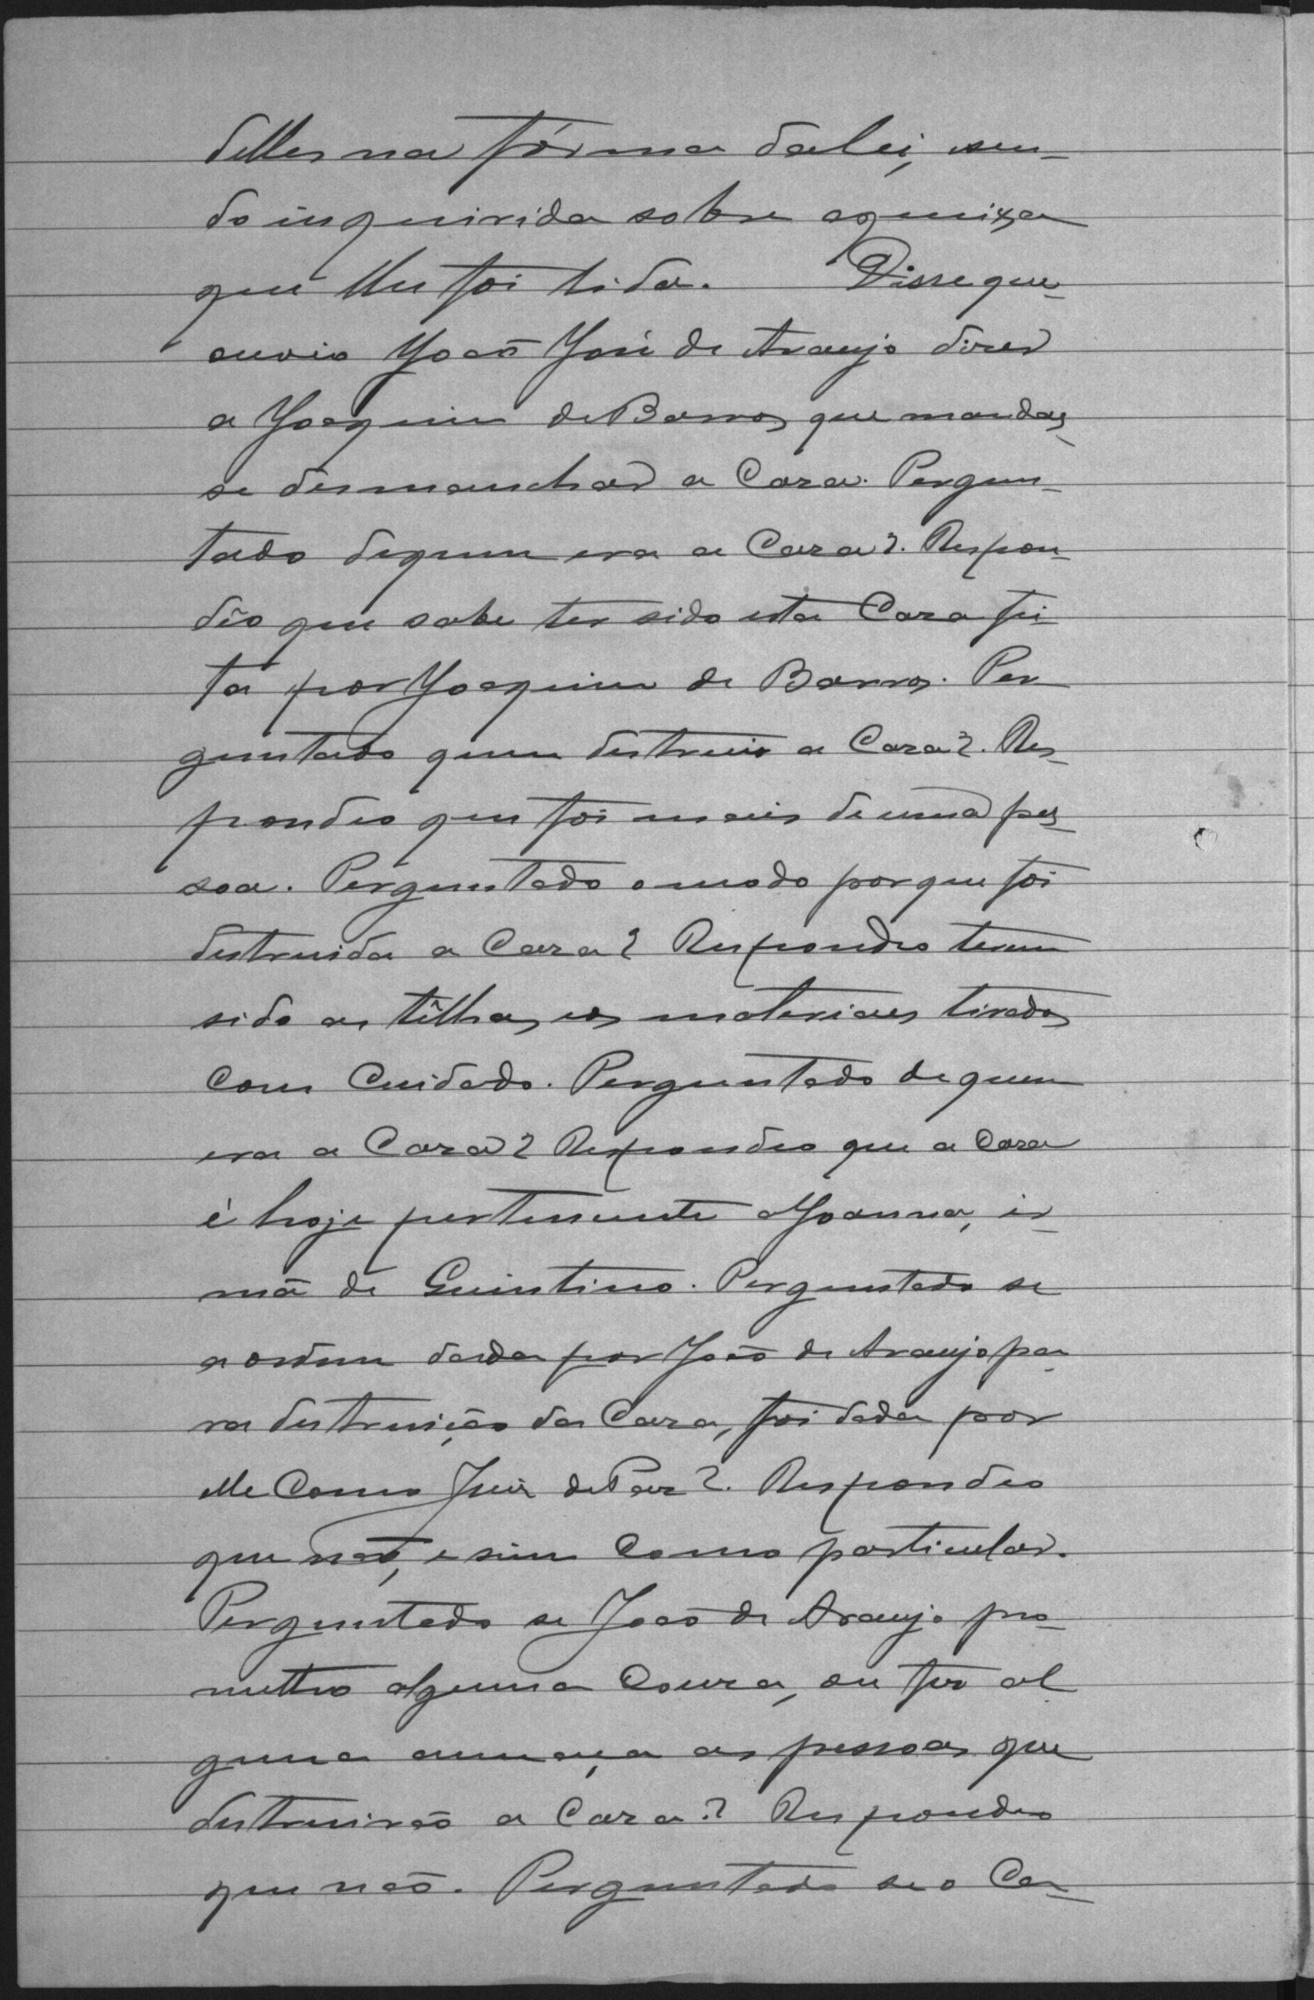 delles na fórma da lei, sen-
do inquirida sobre a queixa
que lhe foi lida. Disse que
ouvio João José de Araujo dizer
a Joaquim de Barros que mandas-
se desmanchar a Caza. Pergun-
tado de quem era a Caza?. Respon-
dêo que sabe ter sido esta Caza fei-
ta por Joaquim de Barros. Per
guntado quem destruio a Caza?. Res-
pondeo que foi mais de uma pes-
soa. Perguntado o modo porque foi
destruida a Caza? Respondeo terem
sido as têlhas, e os materiaes tirados
com Cuidado. Perguntado de quem
era a Caza? Respondeo que a Caza
é hoje pertencente a Joanna, ir-
mã de Guintino. Perguntado se
a ordem dada por João de Araujo pa-
ra destruição da Caza, foi dada por
elle Como Juiz de Paz?. Respondeo
que não, e sim Como particular.
Perguntado se João de Araujo pro-
metteo alguma Couza, ou fez al
guma ameaça as pessoas que
destruirão a Caza? Respondeo
que não. Perguntado se o Ca-